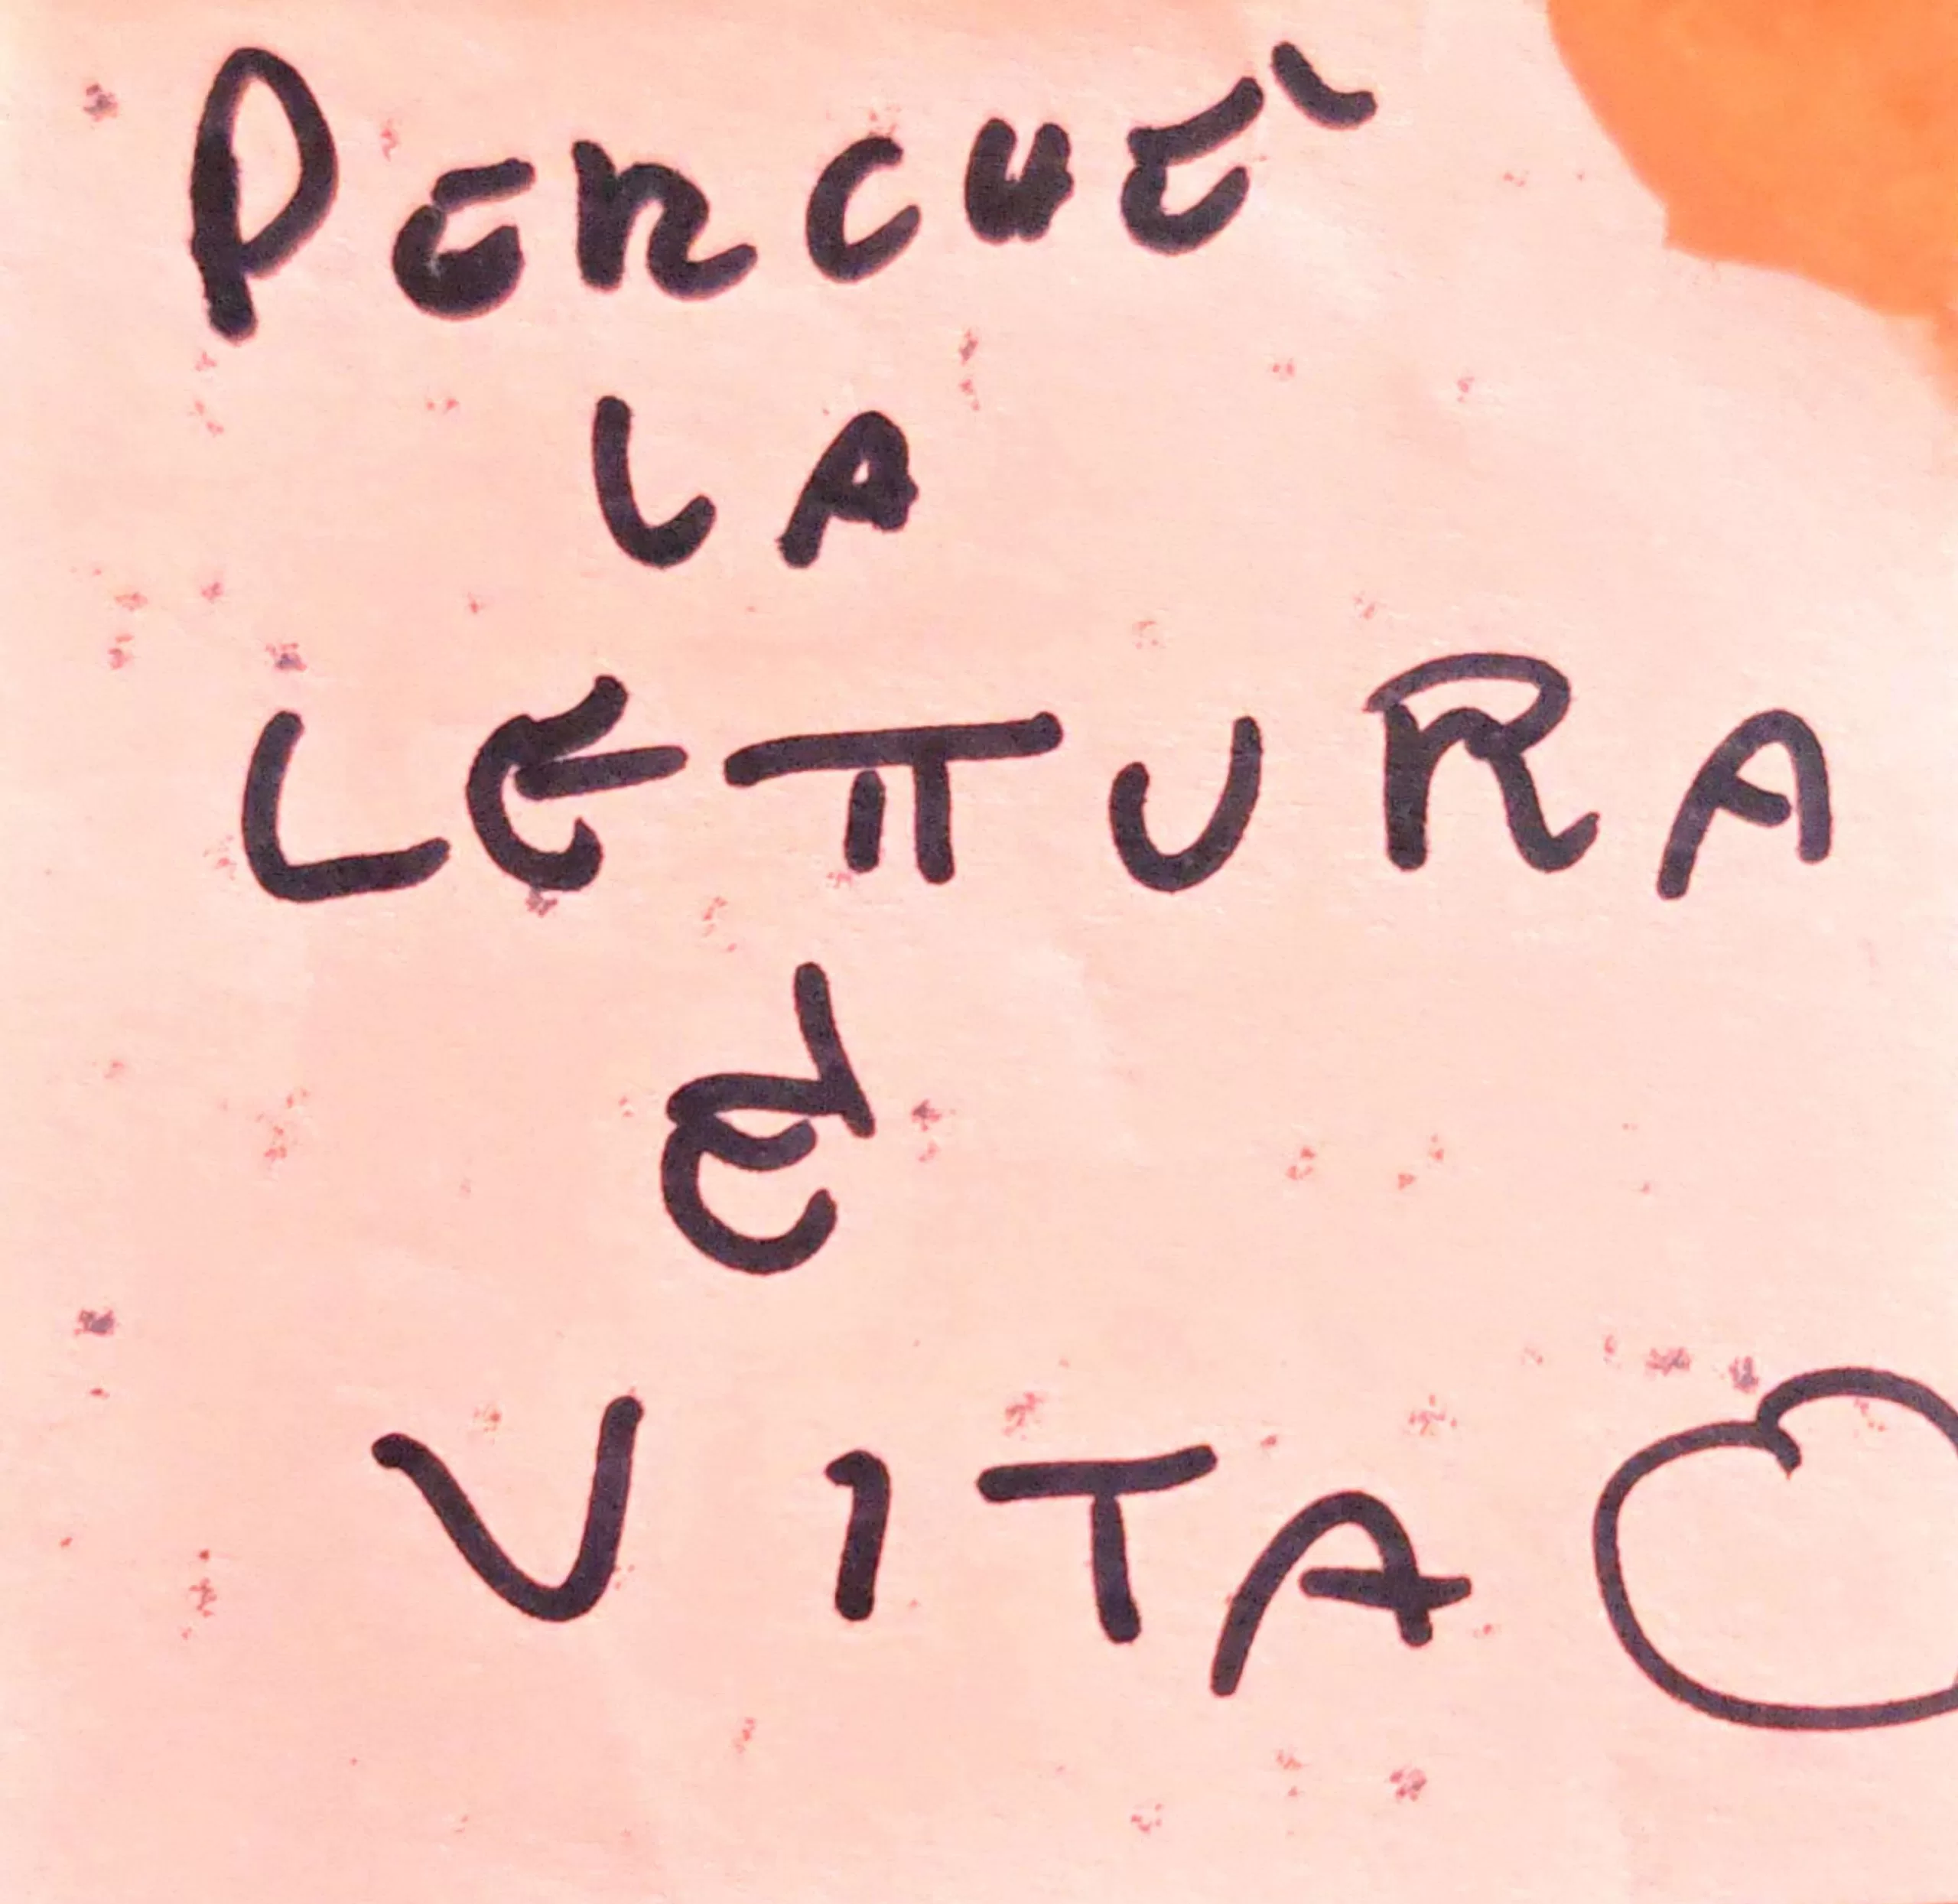 PERCHE'
LA
LETTURA
E'
VITA